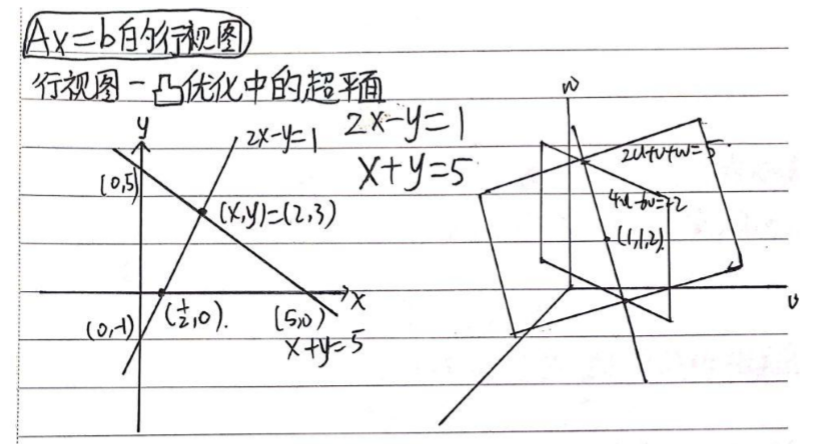 Ax=b的行视图
行视图-凸优化中的超平面
2x-y=1
x+y=5
y
2x-y=1
(0,5)
(x,y)=(2,3)
x
(0,-1)
(½,0).
(5,0)
x+y=5
w
2u+v+w=5.
4u-6v=-2
(1,1,2)
v